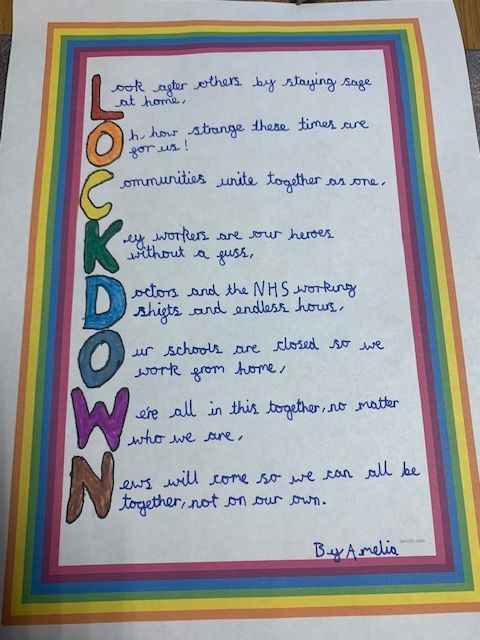 Look after others by staying safe
at home,
Oh, how strange these times are
for us!
Communities unite together as one,
Key workers are our heroes
without a fuss,
Doctors and the NHS working
shifts and endless hours,
Our schools are closed so we
work from home,
We're all in this together, no matter
who we are,
News will come so we can all be
together, not on our own.
By Amelia